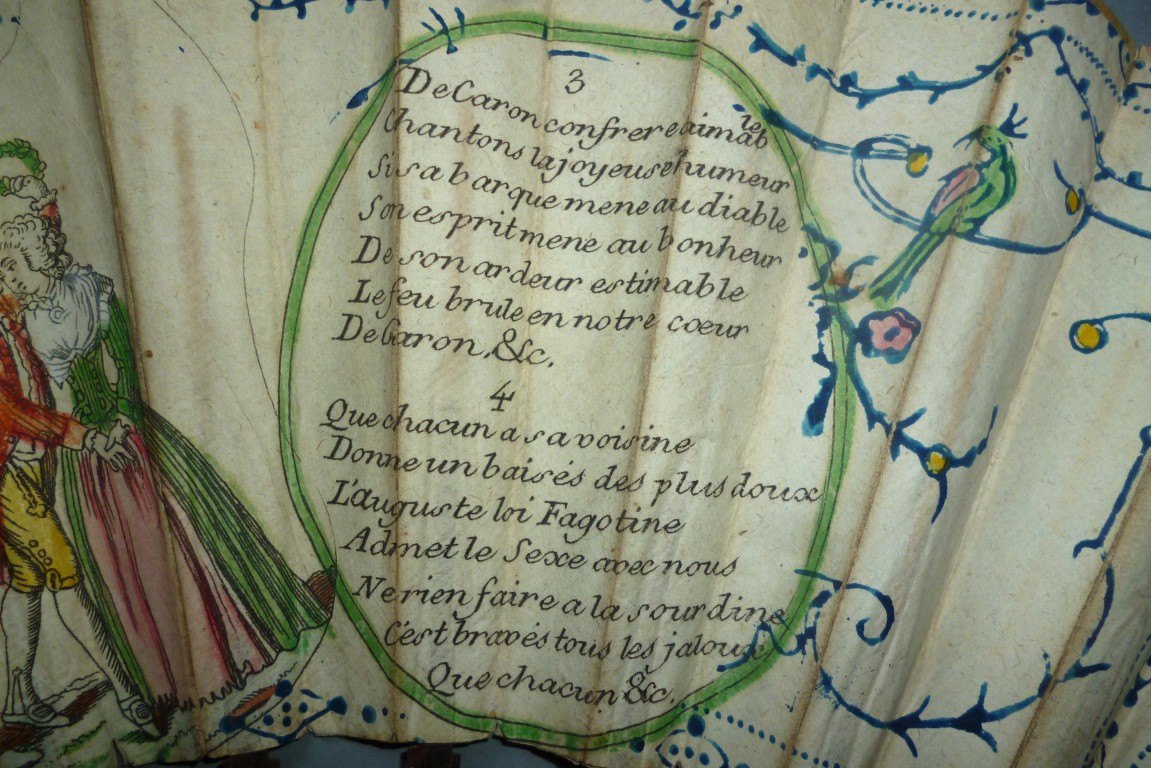 3
De Caron confrere aimable
Chantons la joyeuse humeur
Si sa barque mene au diable
Son esprit mene au bonheur
De son ardeur estimable
Le feu brule en notre coeur
De Caron, &c.
4
Que chacun a sa voisine
Donne un baisés des plus doux
L'auguste loi Fagotine
Admet le Sexe avec nous
Ne rien faire a la sourdine
C'est bravés tous les jaloux
Que chacun &c.